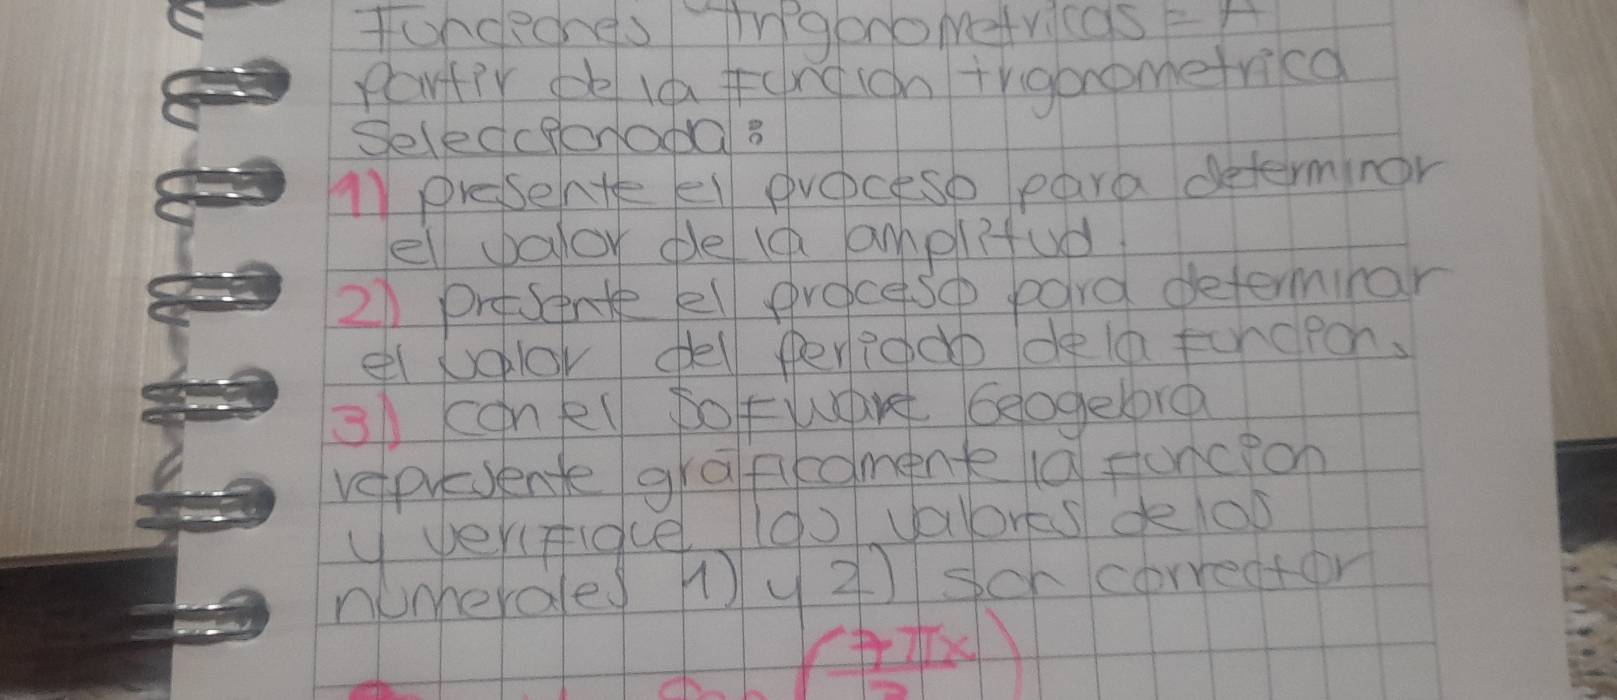 Funciones trigonometricas = A
partir de la función trigonometrica
Seleccionada:
1) presente el proceso para determinar
el valor de la amplitud.
2) presente el proceso para determinar
el valor del periodo de la funcion.
3) con el Software Geogebra
represente gráficamente la funcion
y verifique los valores de los
numerales 1) y 2) son corrector
(7πx)